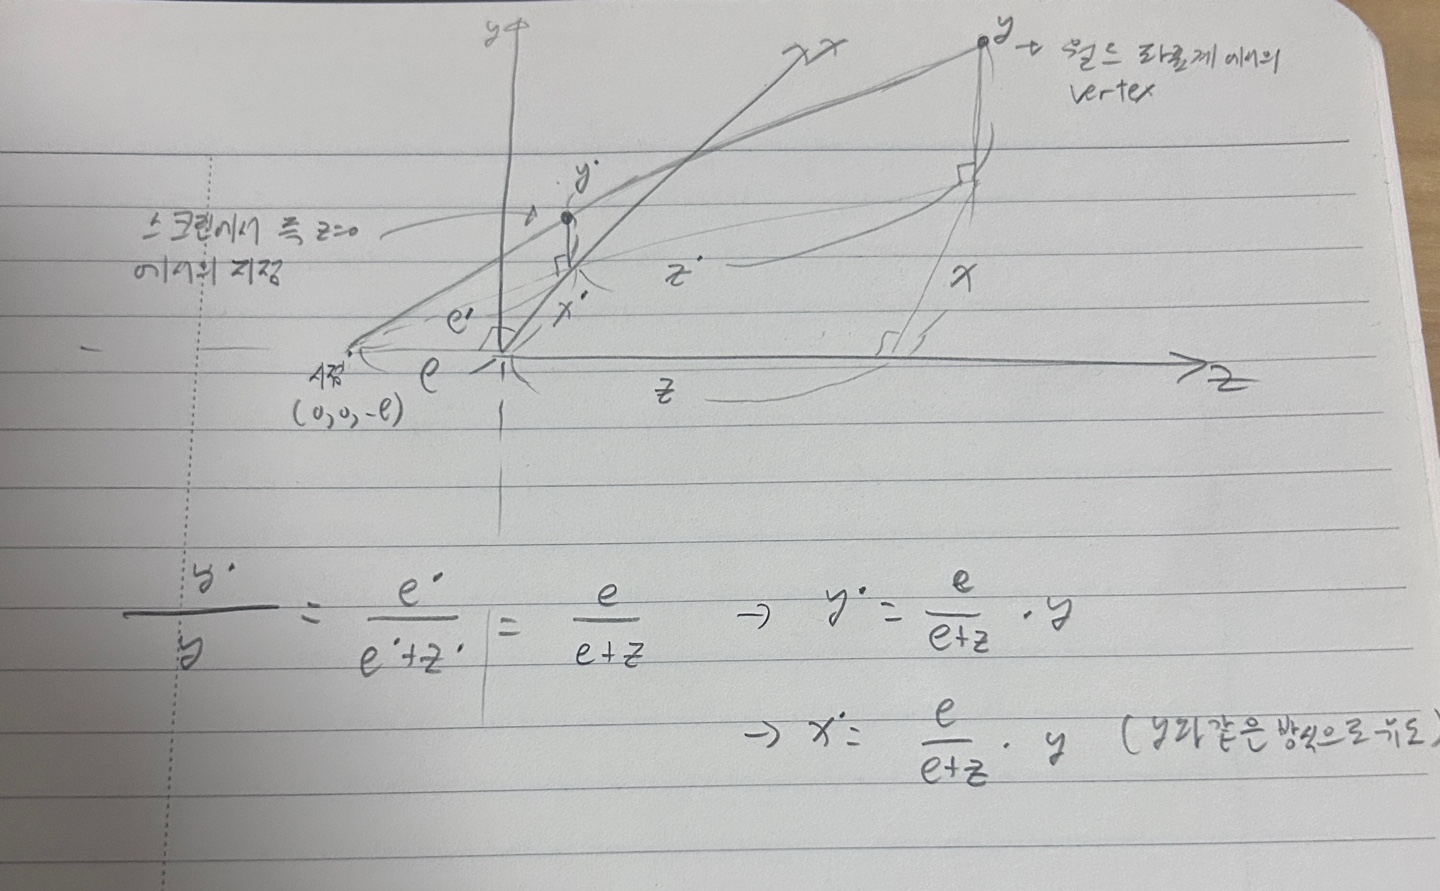 y
x
y → 월드 좌표계에서의
vertex
y'
스크린에서 즉 z=0
에서의 지점
e'
x'
z'
x
시점
(0,0,-e)
e
z
z
y' / y = e' / (e'+z') = e / (e+z) → y' = e / (e+z) · y
→ x' = e / (e+z) · y (y와 같은 방식으로 유도)